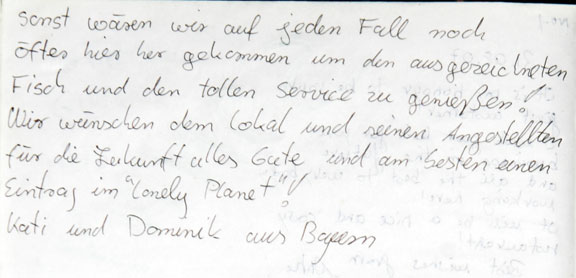 sonst wären wir auf jeden Fall noch
öftes hier her gekommen um den ausgezeichneten
Fisch und den tollen Service zu genießen!
Wir wünschen dem Lokal und seinen Angestellten
für die Zukunft alles Gute und am besten einen
Eintrag im "Lonely Planet"!
Kati und Dominik aus Bayern